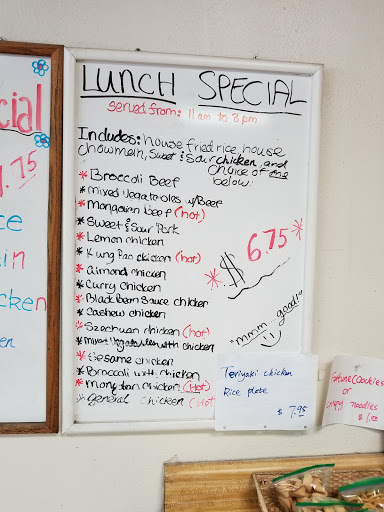 cial
.75
ce
in
cken
en
LUNCH SPECIAL
served from: 11 am to 3 pm
Includes: house fried rice, house
chowmein, Sweet & Sour chicken, and
choice of one
below:
*Broccoli Beef
*mixed vegetables w/Beef
*Mongolian beef (hot)
*Sweet & Sour Pork
*Lemon chicken
*Kung Pao chicken (hot)
*Almond chicken
*Curry chicken
*Black Bean Sauce chicken
*Cashew chicken
*Szechuan chicken (hot)
*Mixed vegetables with chicken
*Sesame chicken
*Broccoli with chicken
*Mongolian chicken (Hot)
*General chicken (Hot)
*$6.75*
"mmm.. good!"
Teriyaki chicken
Rice plate
$ 7.95
fortune cookies
or
crispy noodles